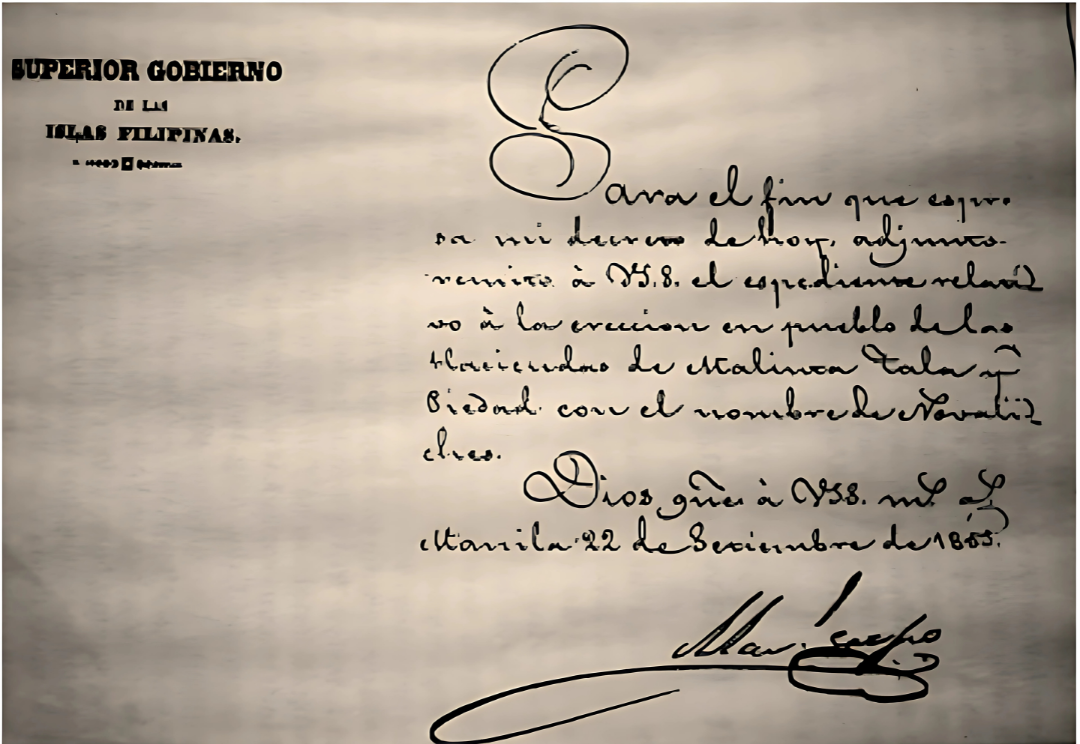 SUPERIOR GOBIERNO
DE LAS
ISLAS FILIPINAS.
Para el fin que espre-
sa mi decreto de hoy, adjunto
remito à V.S. el espediente relati-
vo à la ereccion en pueblo de las
Haciendas de Malinta Tala y
Piedad con el nombre de Novali-
ches.
Dios gũe à V.S. m.s a.s
Manila 22 de Setiembre de 1855.